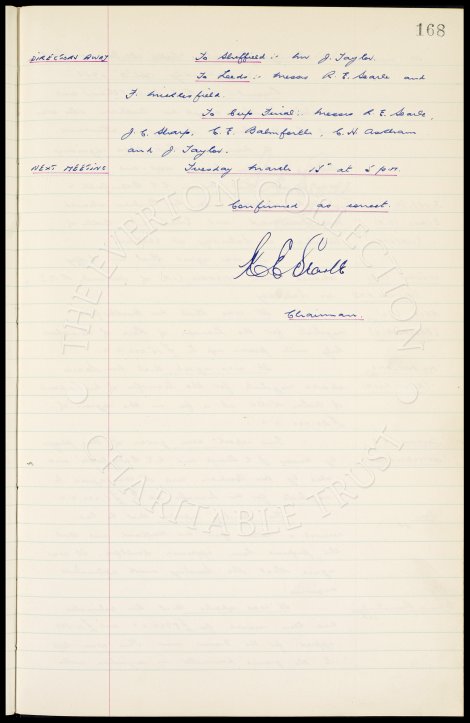 168
DIRECTORS AWAY To Sheffield :- Mr J. Taylor.
To Leeds :- Messrs R. E. Searle and
F. Micklesfield.
To Cup Final :- Messrs R. E. Searle,
J. C. Sharp, C. E. Balmforth, C. H. Askham
and J. Taylor.
NEXT MEETING Tuesday March 15th at 5 p.m.
Confirmed as correct.
R E Searle
Chairman.
THE EVERTON COLLECTION
CHARITABLE TRUST